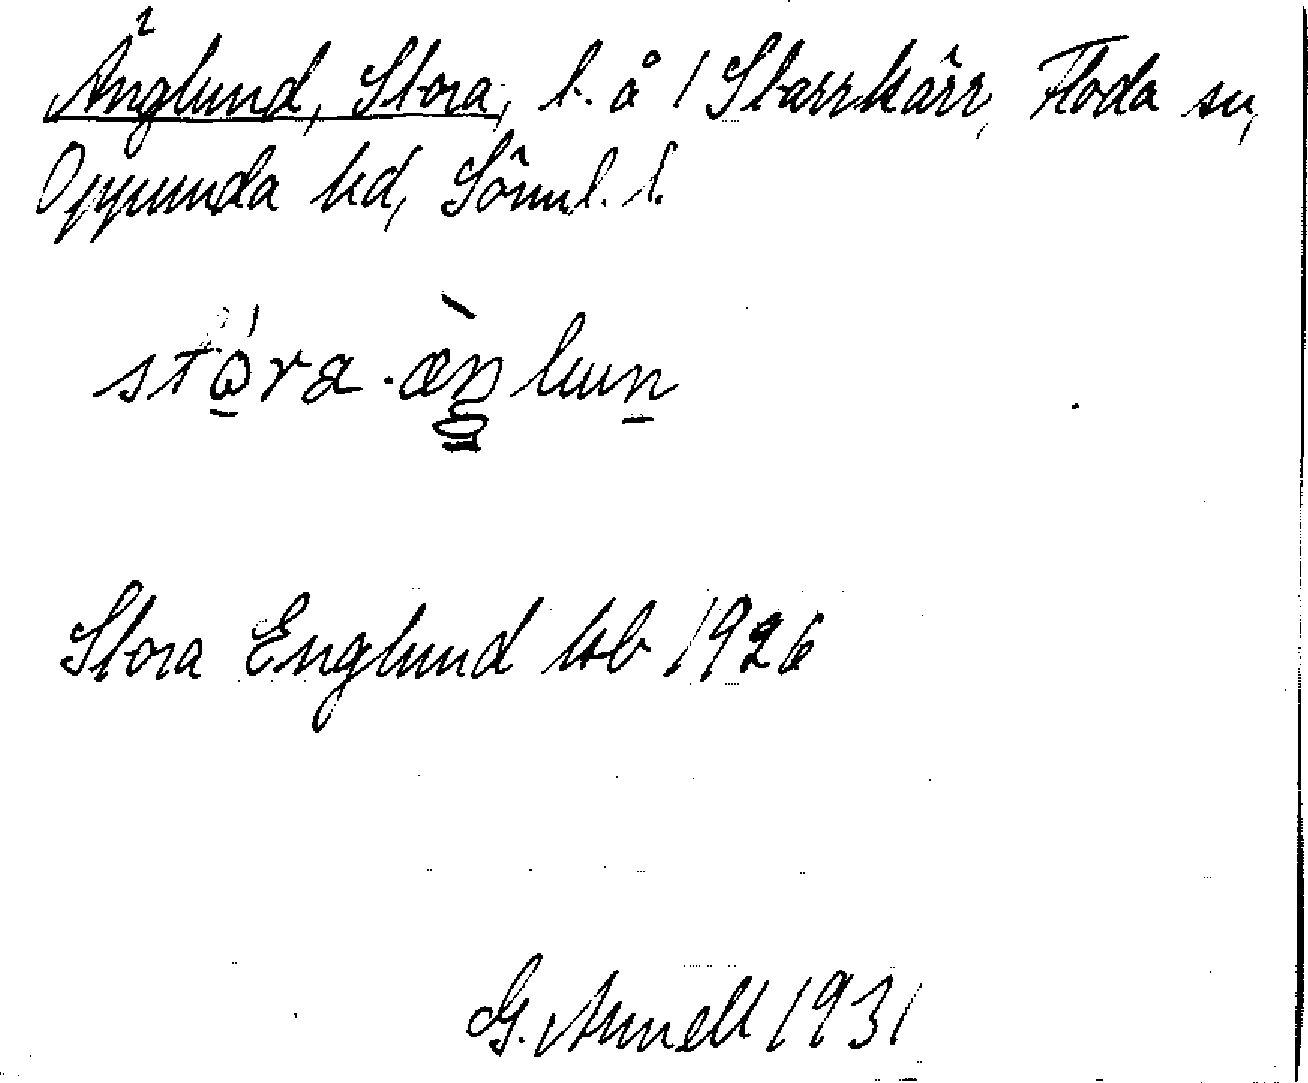 Änglund, Stora, l. å 1 Starrkärr, Floda sn,
Oppunda hd, Söml. l.
stɷ́ra·æ̀nlun
Stora Englund kb 1926
G. Arnell 1931